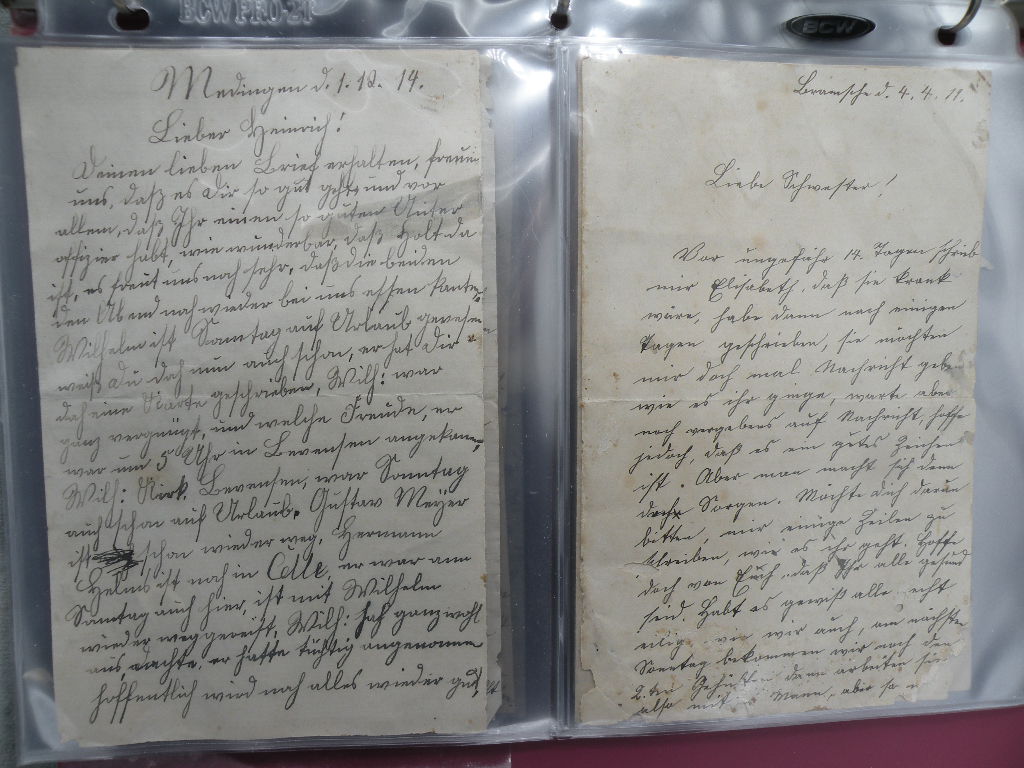 BCW PRO 21
BCW
Medingen d. 1. 12. 14.
Lieber Heinrich!
Deinen lieben Brief erhalten, freuen
uns, daß es Dir so gut geht, und vor
allem, daß Ihr einen so guten Unter
offizier habt, wie wunderbar, daß Holt da
ist, es freut uns noch sehr, daß die beiden
den Abend noch wieder bei uns essen
Wilhelm ist Sonntag auf Urlaub gewesen
weißt Du doch nun auch schon, er hat Dir
doch eine Karte geschrieben, Wilh: war
ganz vergnügt, und welche Freude, er
war um 5 Uhr in Bevensen angekom
Wilh: Bevensen, war Sonntag
auch schon auf Urlaub. Gustav Meyer
ist schon wieder weg, Hermann
Helms ist noch in Celle, er war am
Sonntag auch hier, ist mit Wilhelm
wieder weggereist, Wilh: sah ganz wohl
aus, dachte, er hätte tüchtig angenommen
hoffentlich wird noch alles wieder gut
Bramsche d. 4. 4. 11.
Liebe Schwester!
Vor ungefähr 14 Tagen schrieb
mir Elisabeth, daß sie krank
wäre, habe dann nach einigen
Tagen geschrieben, sie möchten
mir doch mal Nachricht geben
wie es ihr ginge, warte aber
noch vergebens auf Nachricht, hoffe
jedoch, daß es ein gutes Zeichen
ist. Aber man macht sich denn
doch Sorgen. Möchte dich darum
bitten, mir einige Zeilen zu
schreiben, wie es ihr geht. Hoffe
doch von Euch, daß Ihr alle gesund
seid. Habt es gewiß alle recht
eilig, wie wir auch, am nächsten
Sonntag bekommen wir noch den
2. ten Gehülfen dann arbeiten sie
also mit Mann, aber so